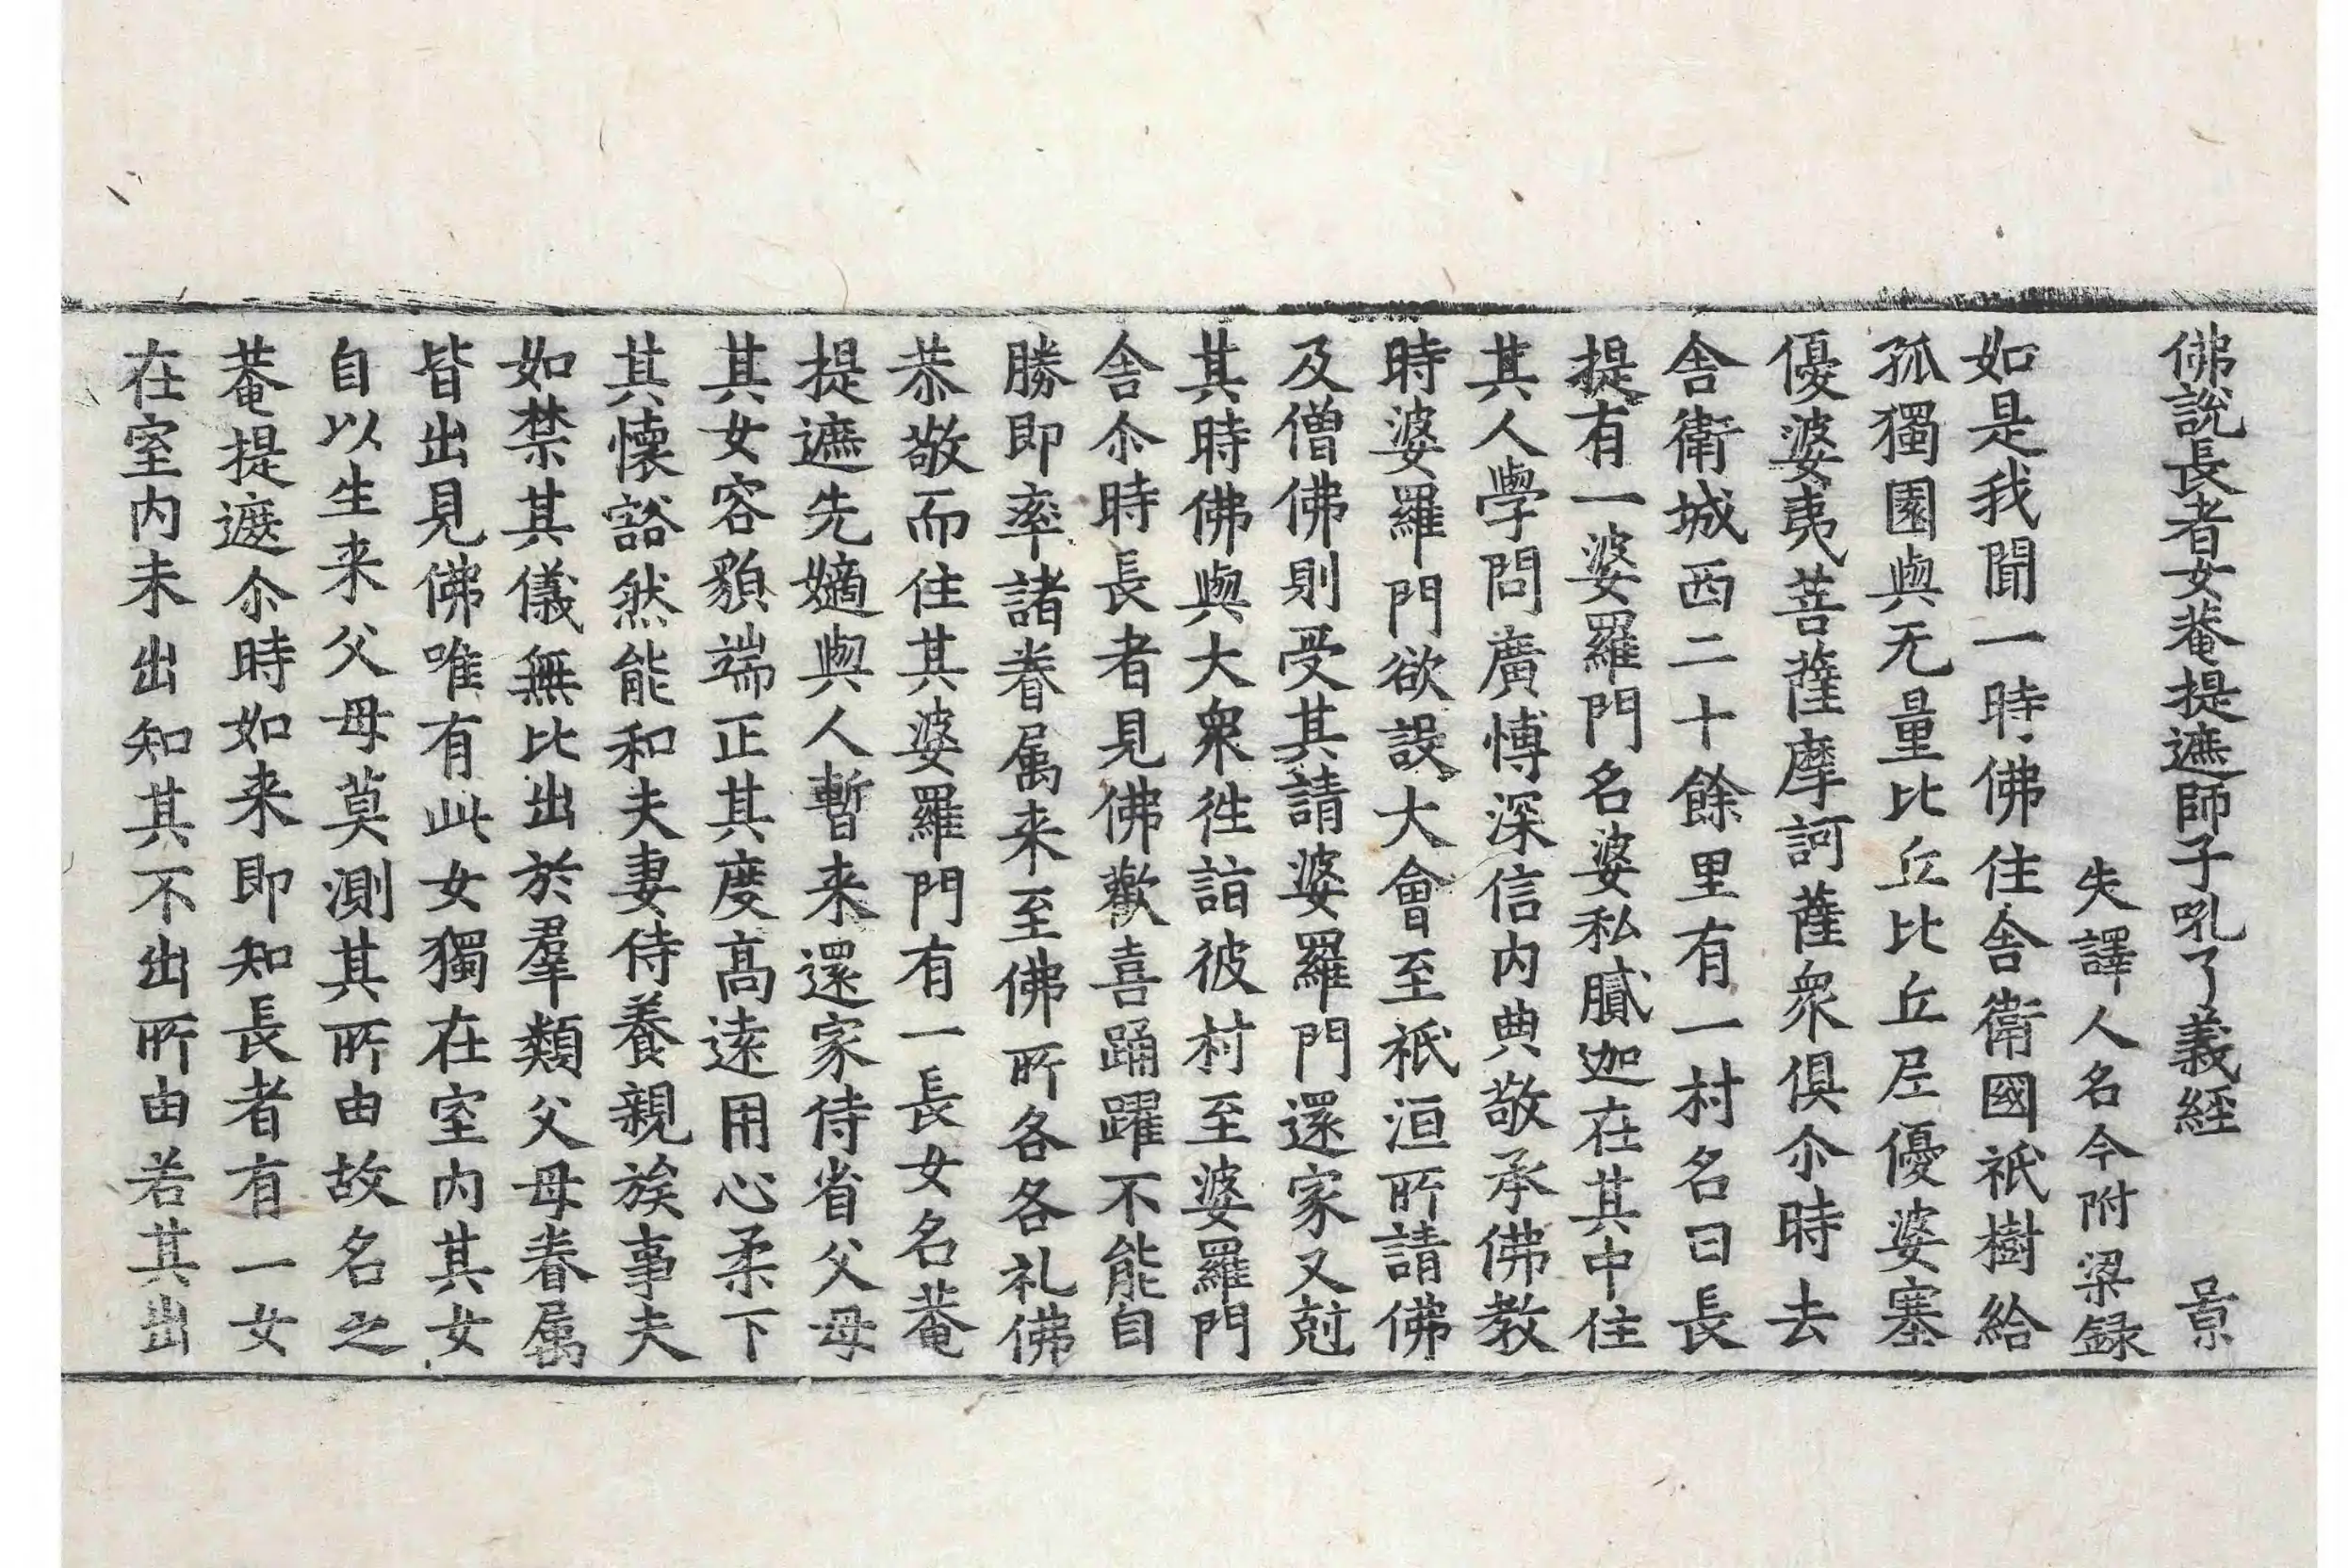 佛說長者女菴提遮師子吼了義經　景
失譯人名今附梁録
如是我聞一時佛住舎衛國祇樹給
孤獨園與无量比丘比丘尼優婆塞
優婆夷菩薩摩訶薩衆俱尒時去
舎衛城西二十餘里有一村名曰長
提有一婆羅門名婆私膩迦在其中住
其人學問廣博深信内典敬承佛教
時婆羅門欲設大會至祇洹所請佛
及僧佛則受其請婆羅門還家又尅
其時佛與大衆徃詣彼村至婆羅門
舎尒時長者見佛歡喜踊躍不能自
勝即率諸眷属来至佛所各各礼佛
恭敬而住其婆羅門有一長女名菴
提遮先嫡與人暫来還家侍省父母
其女容貌端正其度高遠用心柔下
其懐豁然能和夫妻侍養親族事夫
如禁其儀無比出於羣類父母眷属
皆出見佛唯有此女獨在室内其女
自以生来父母莫測其所由故名之
菴提遮尒時如来即知長者有一女
在室内未出知其不出所由若其出